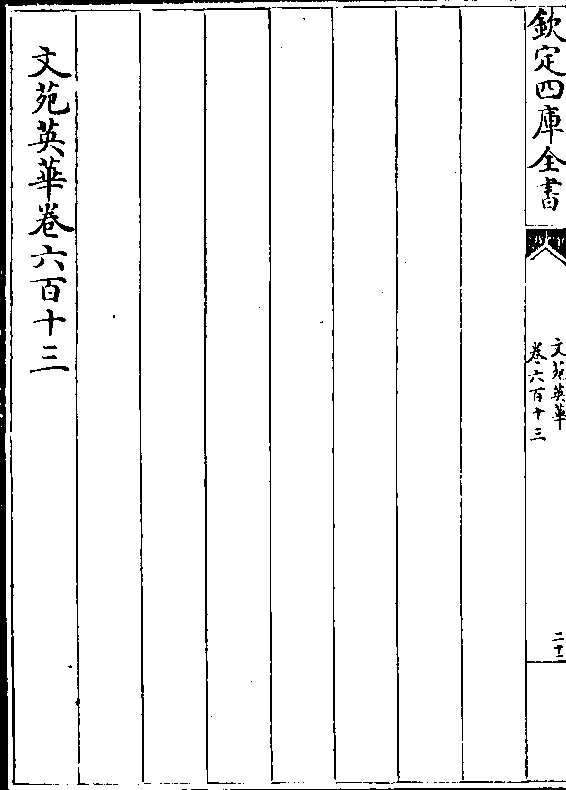 欽定四庫全書
文苑英華
卷六百十三
二十二
文苑英華卷六百十三